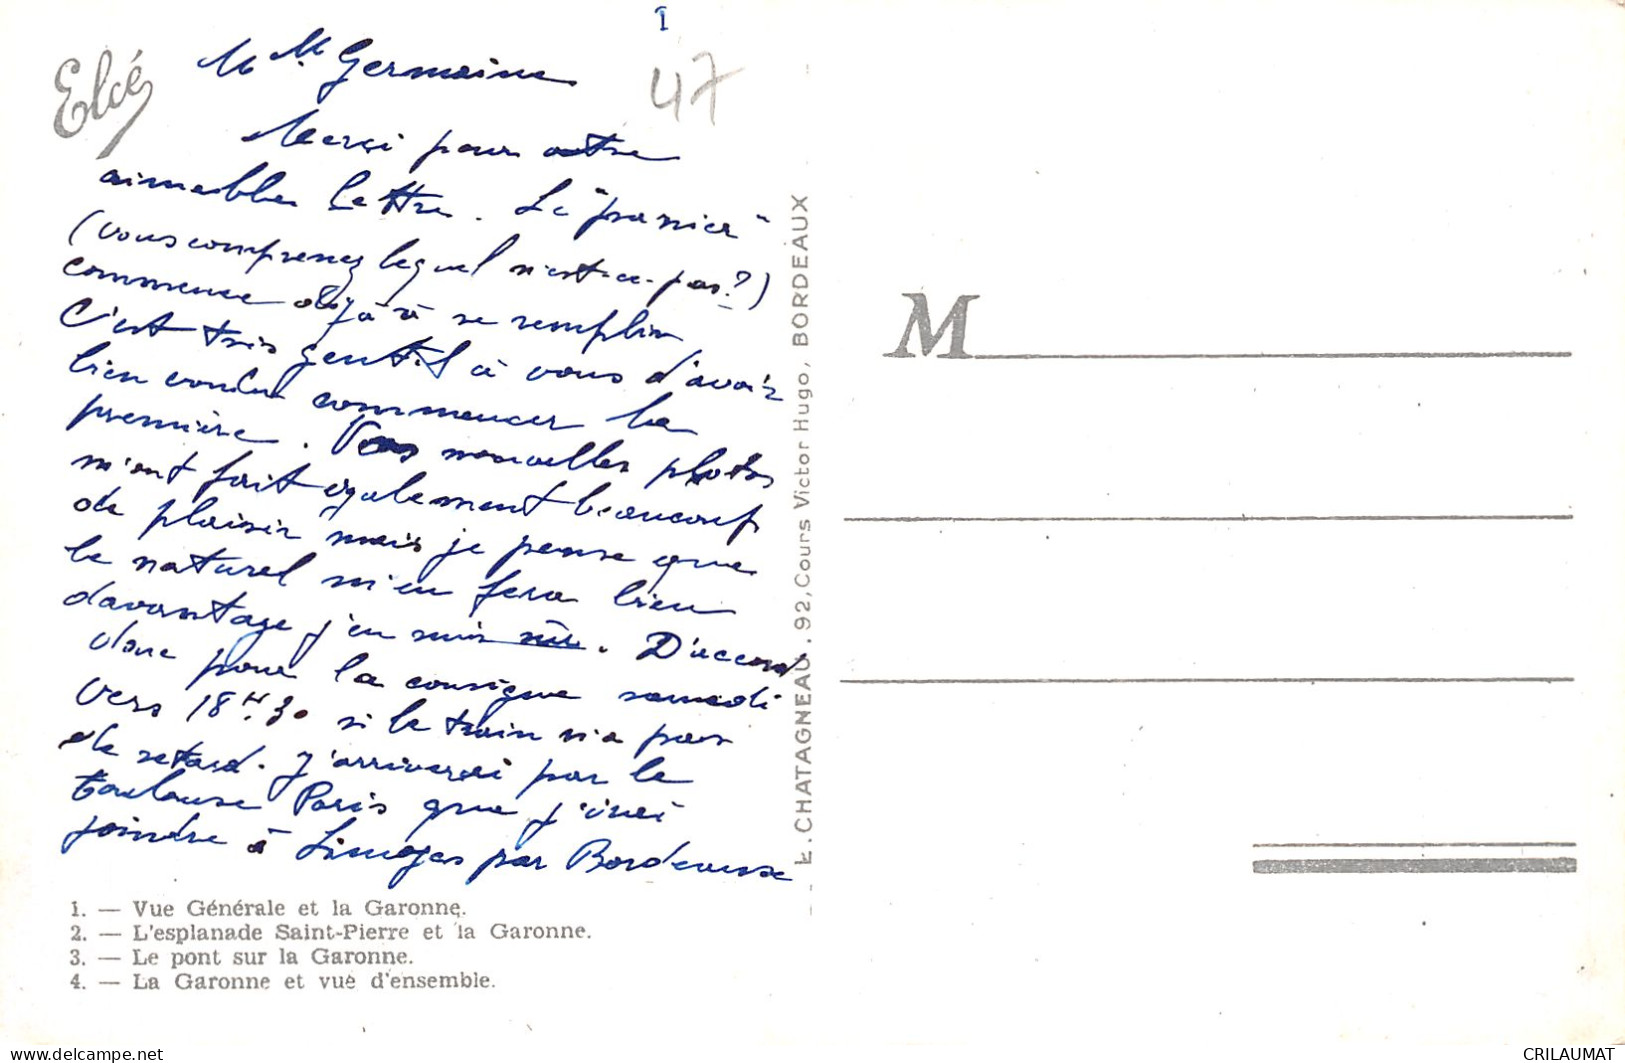 1
47
Elcé
M lle Germaine
Merçi pour votre
aimable lettre. Le "panier"
(vous comprenez lequel n'est-ce-pas?)
commence déjà à se remplir
C'est très gentil à vous d'avoir
bien voulu commencer la
première. Vos nouvelles photos
m'ont fait également beaucoup
de plaisir mais je pense que
le naturel m'en fera bien
davantage j'en suis sûr. D'accord
donc pour la consigne samedi
vers 18H30 si le train n'a pas
de retard. J'arriverai par le
Toulouse Paris que j'irai
joindre à Limoges par Bordeaux
1. — Vue Générale et la Garonne.
2. — L'esplanade Saint-Pierre et la Garonne.
3. — Le pont sur la Garonne.
4. — La Garonne et vue d'ensemble.
E. CHATAGNEAU, 92, Cours Victor Hugo, BORDEAUX
M
delcampe.net
CRILAUMAT